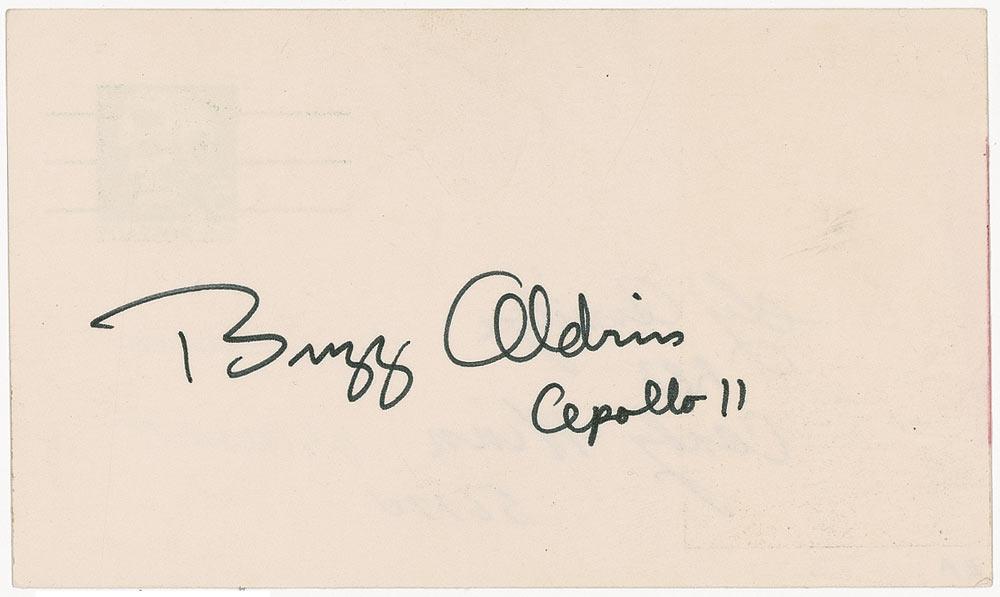 Buzz Aldrin
Apollo 11